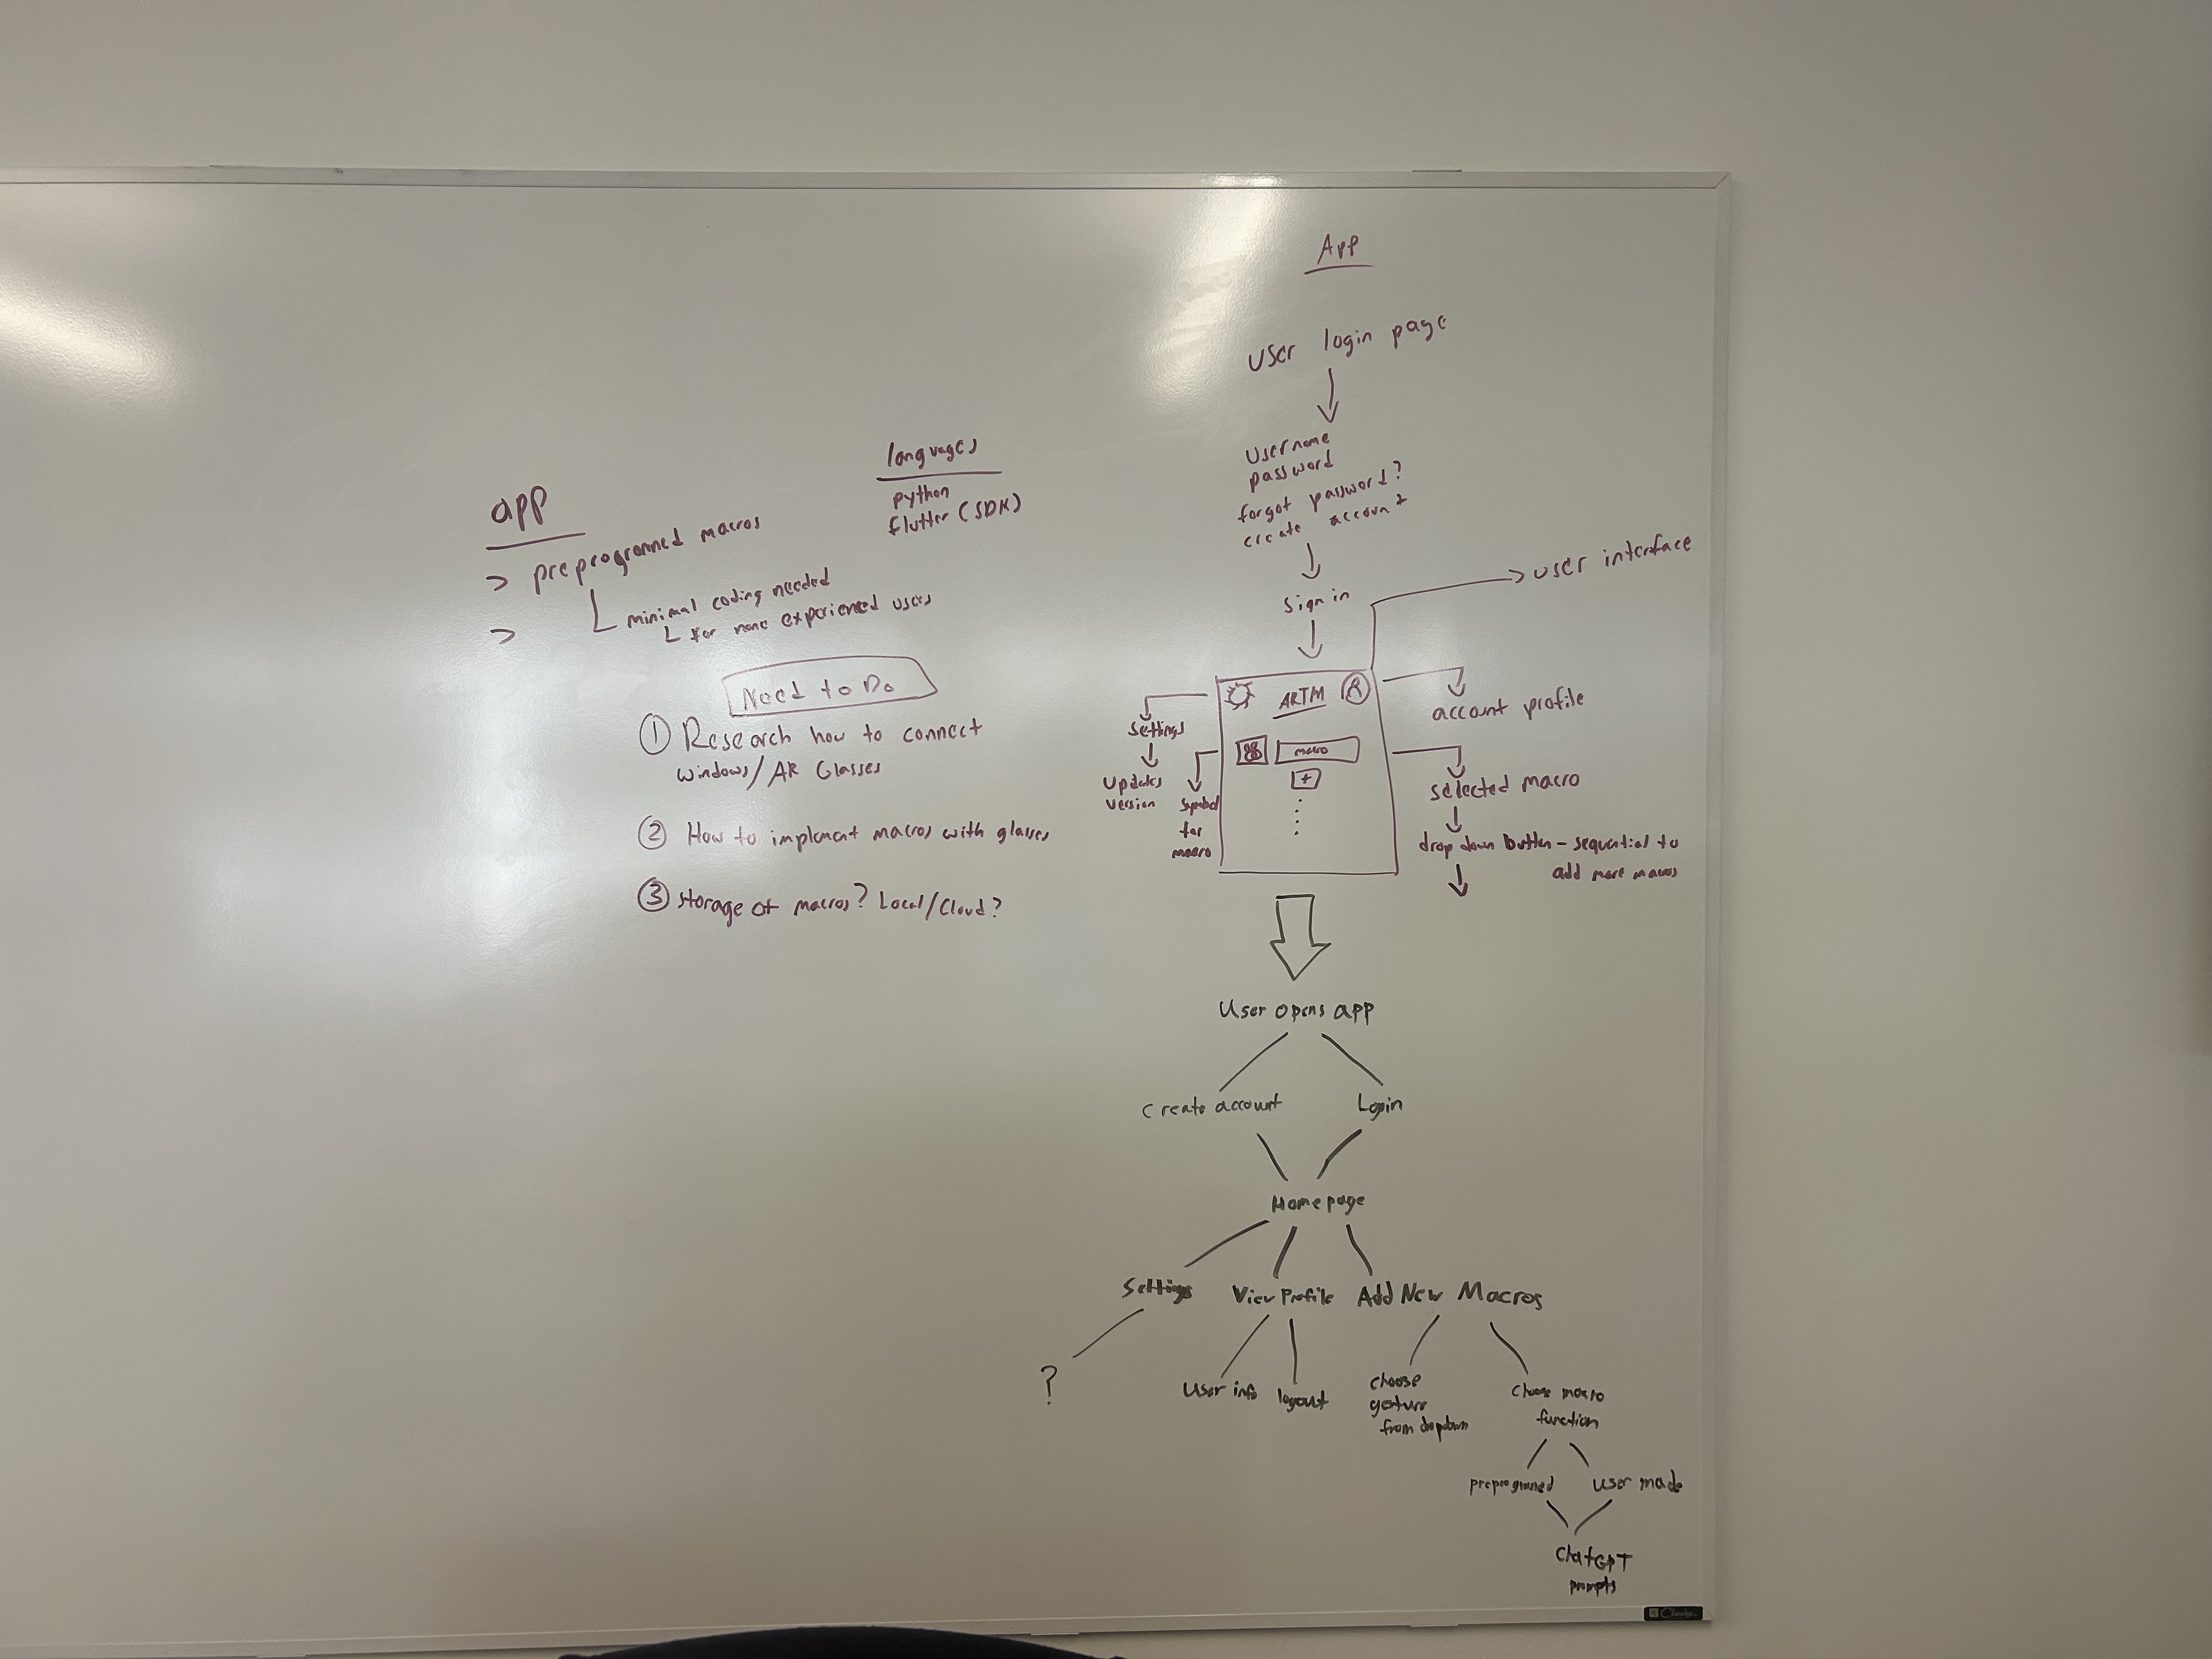 app
> preprogrammed macros
minimal coding needed
for none experienced users
>
languages
python
flutter (SDK)
Need to Do
① Research how to connect
windows/AR Glasses
② How to implement macros with glasses
③ storage of macros? Local/Cloud?
App
User login page
Username
password
forgot password?
create account
Sign in
user interface
ARTM
macro
+
settings
Updates
version
symbol
for
macro
account profile
selected macro
drop down button - sequential to
add more macros
User opens app
Create account
Login
Home page
Settings
View Profile
Add New Macros
?
User info
logout
choose
gesture
from dropdown
Choose macro
function
preprogrammed
user made
ChatGPT
prompts